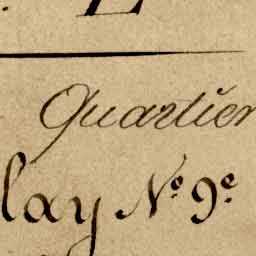 Quartier
lay Nº 9e